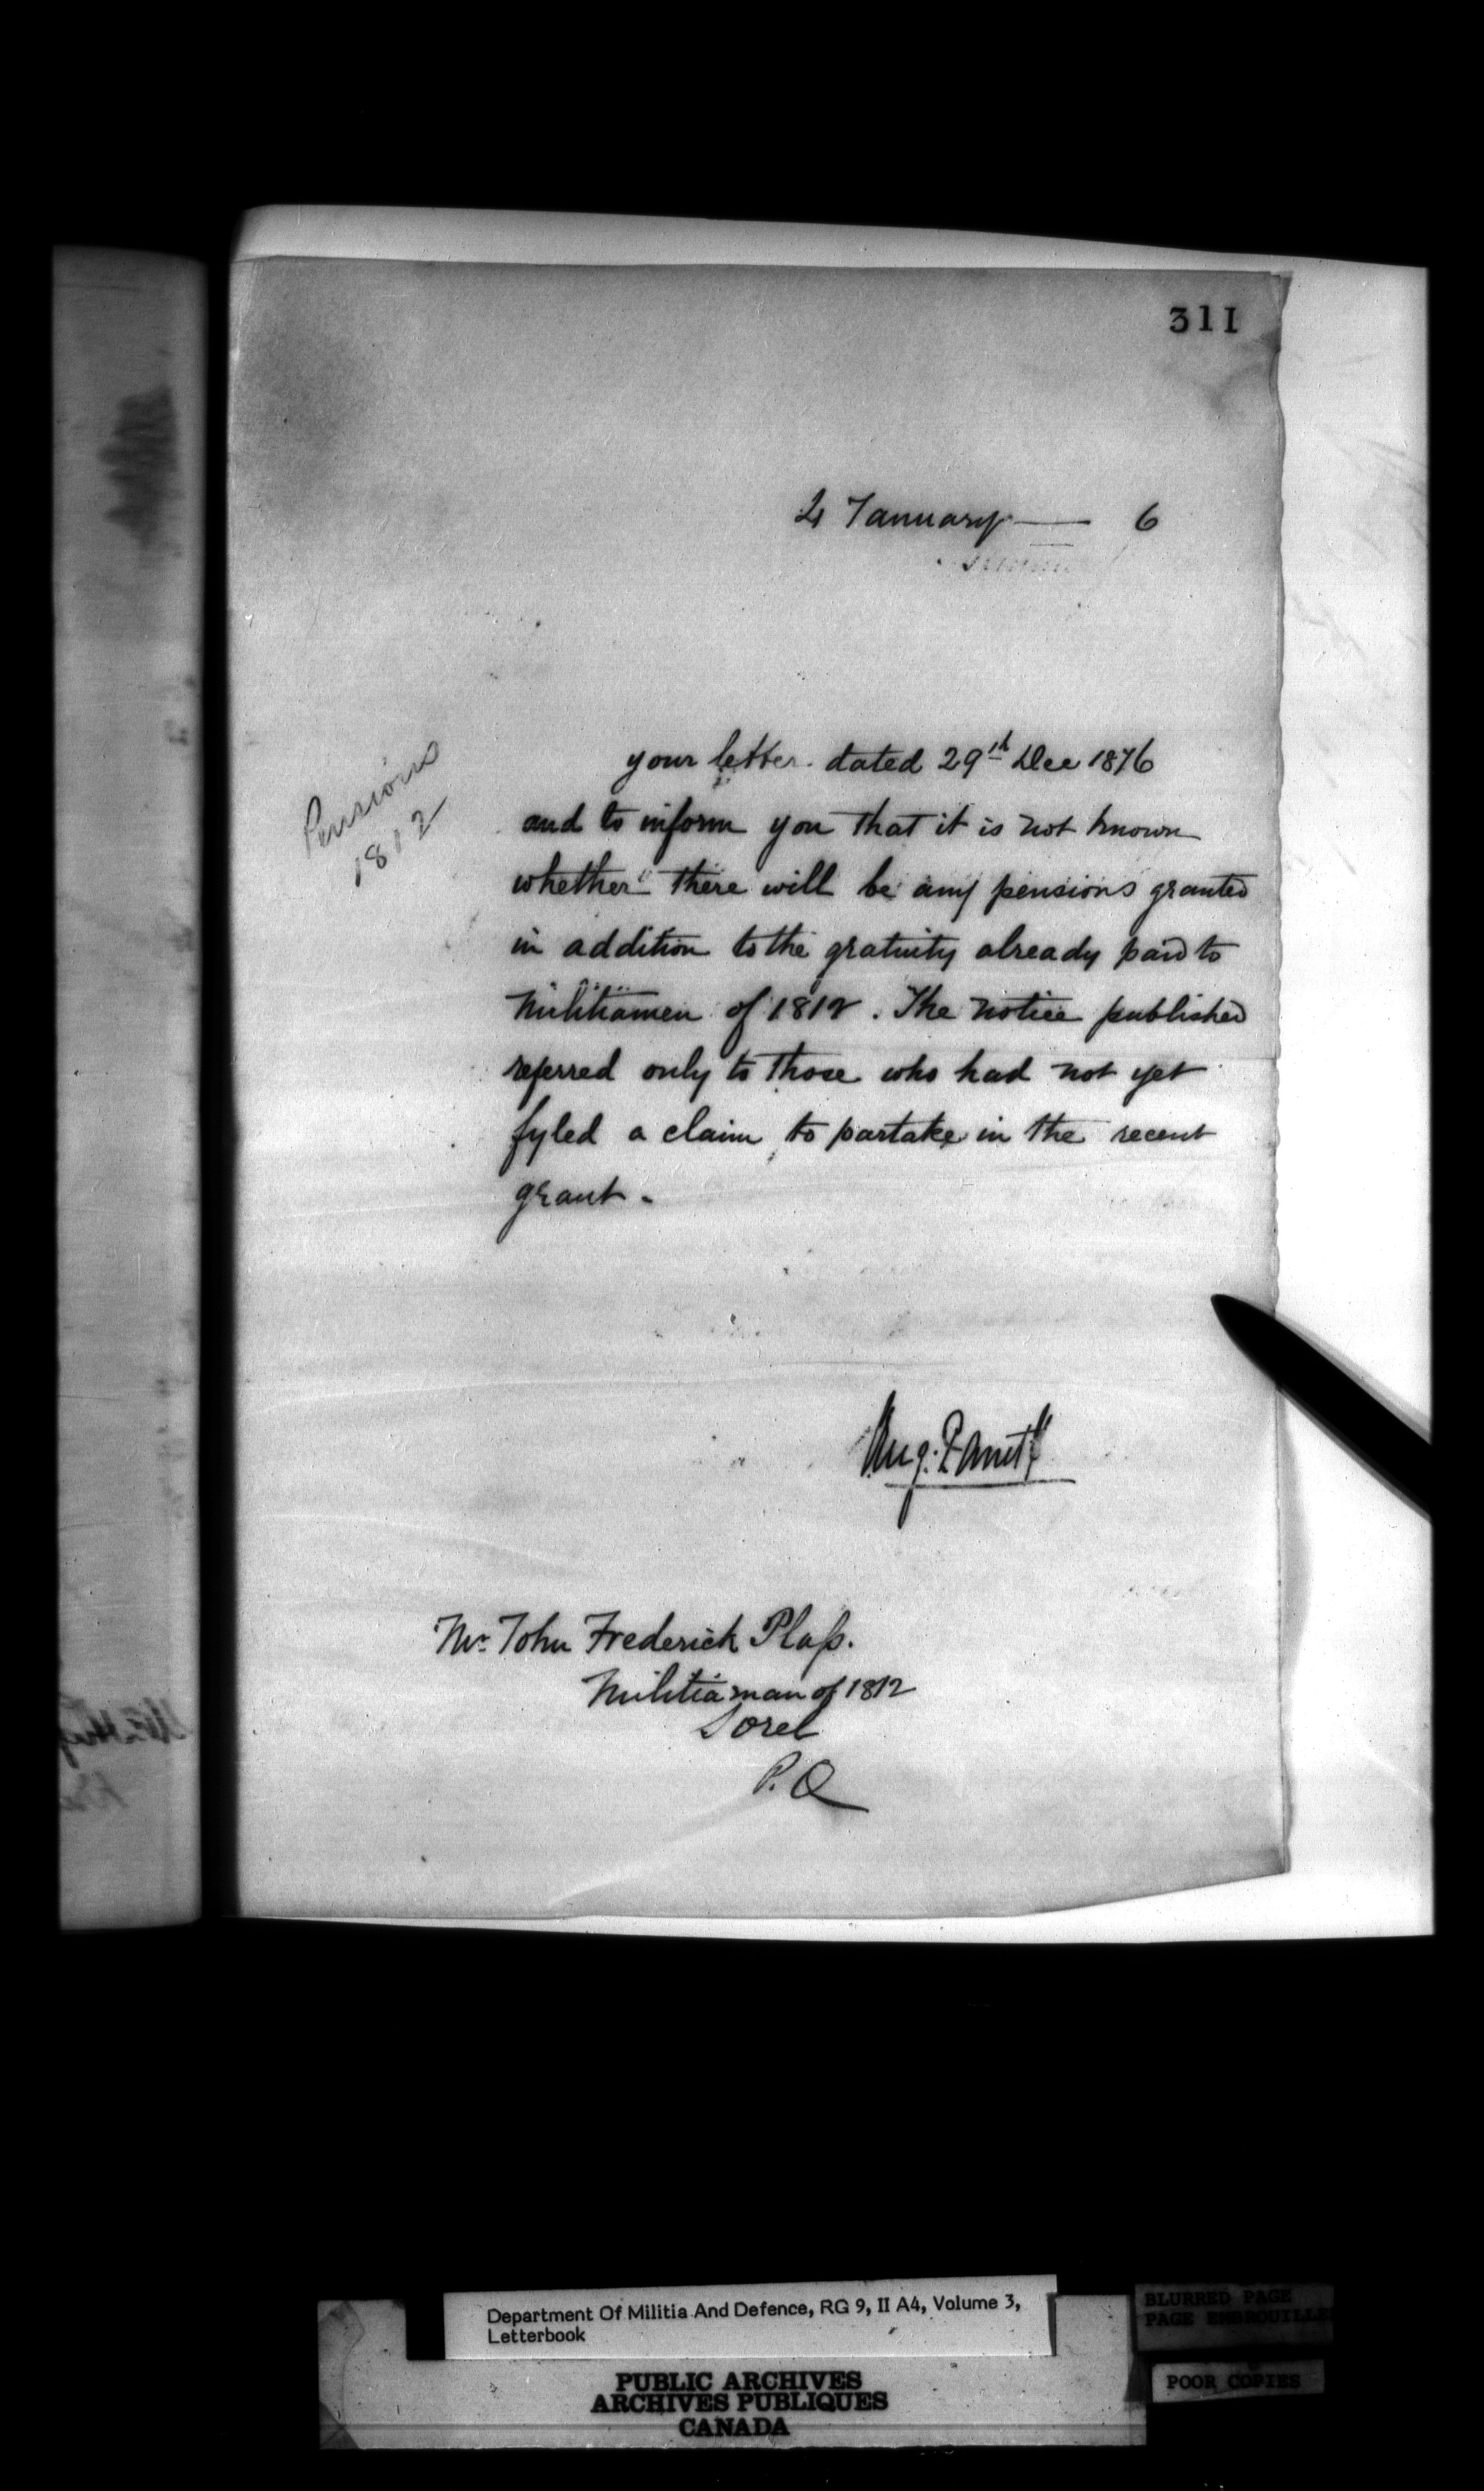 311
4 January — 6
Pensions
1812
your letter dated 29th Dec 1876
and to inform you that it is not known
whether there will be any pensions granted
in addition to the gratuity already paid to
Militiamen of 1812. The notice published
referred only to those who had not yet
fyled a claim to partake in the recent
grant.
Aug. Panet
Mr. John Frederick Plaſs.
Militiaman of 1812
Sorel
P.Q
Department Of Militia And Defence, RG 9, II A4, Volume 3,
Letterbook
BLURRED PAGE
PAGE EMBROUILLE
POOR COPIES
PUBLIC ARCHIVES
ARCHIVES PUBLIQUES
CANADA